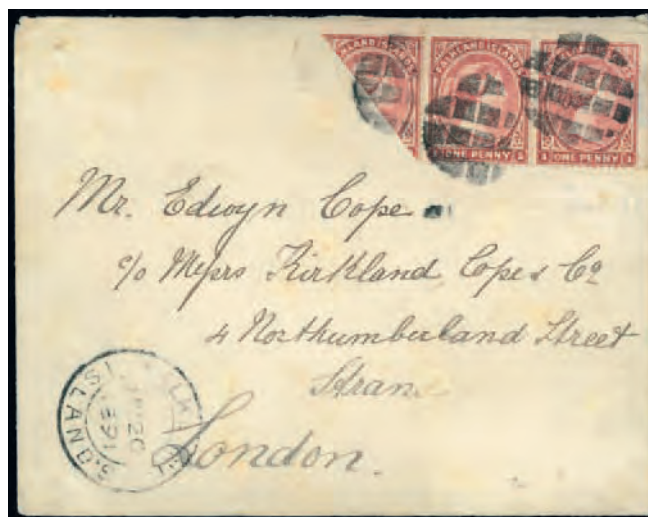 FALKLAND ISLANDS
ONE PENNY
ONE PENNY
Mr. Edwyn Cope
c/o Messrs Kirkland, Cope & Co
4 Northumberland Street
Stran
London.
ISLANDS.
20
91